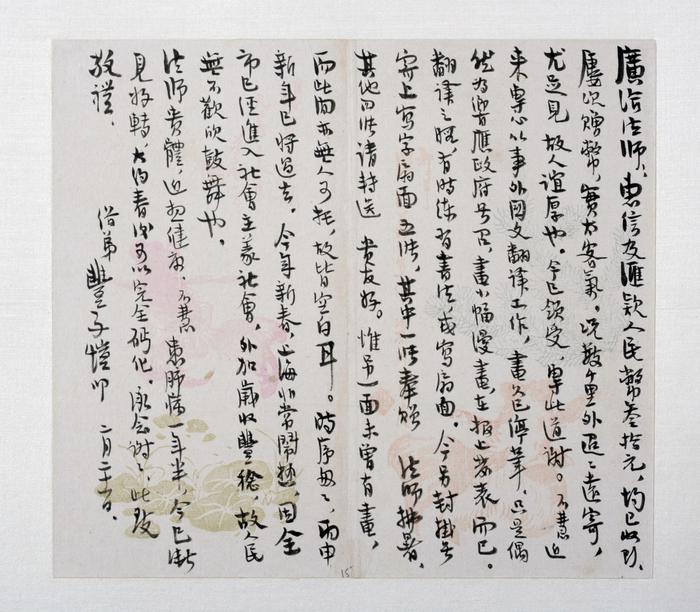 廣洽法師：惠信及匯款人民幣叁拾元，均已收到，
屢次贈幣，實太客氣。況數千里外迢迢遠寄，
尤足見故人誼厚也。今已領受，專此道謝。不慧近
來專心從事外國文翻譯工作，畫久已停筆，只是偶
然為響應政府号召，畫小幅漫畫，在報上發表而已。
翻譯之暇，有時練習書法，或寫扇面。今另封掛号
寄上寫字扇面五張，其中一張奉贈 法師拂暑，
其他四張請轉送 貴友好。惟另一面未曾有畫，
而此間亦無人可托，故皆空白耳。時序匆匆，丙申
新年已將過去。今年新春，上海非常鬧熱，因全
市已經進入社會主義社會，外加歲收豐稔，故人民
無不歡欣鼓舞也。
法師貴體，近想健康，不慧患肺病一年半，今已漸
見好轉，大約春後可以完全鈣化。承念謝謝，此致
敬禮。
僧弟 豐子愷叩 二月二十日。
15